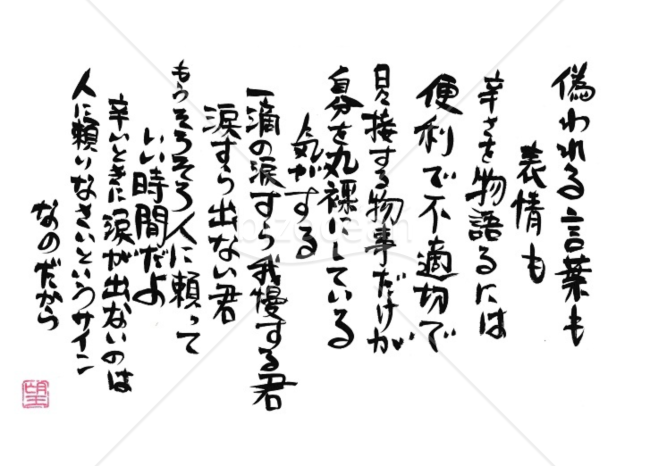 偽われる言葉も
表情も
辛さを物語るには
便利で不適切で
日々接する物事だけが
自分を丸裸にしている
気がする
一滴の涙すら我慢する君
涙すら出ない君
もうそろそろ人に頼って
いい時間だよ
辛いときに涙が出ないのは
人に頼りなさいというサイン
なのだから
望
bizocean